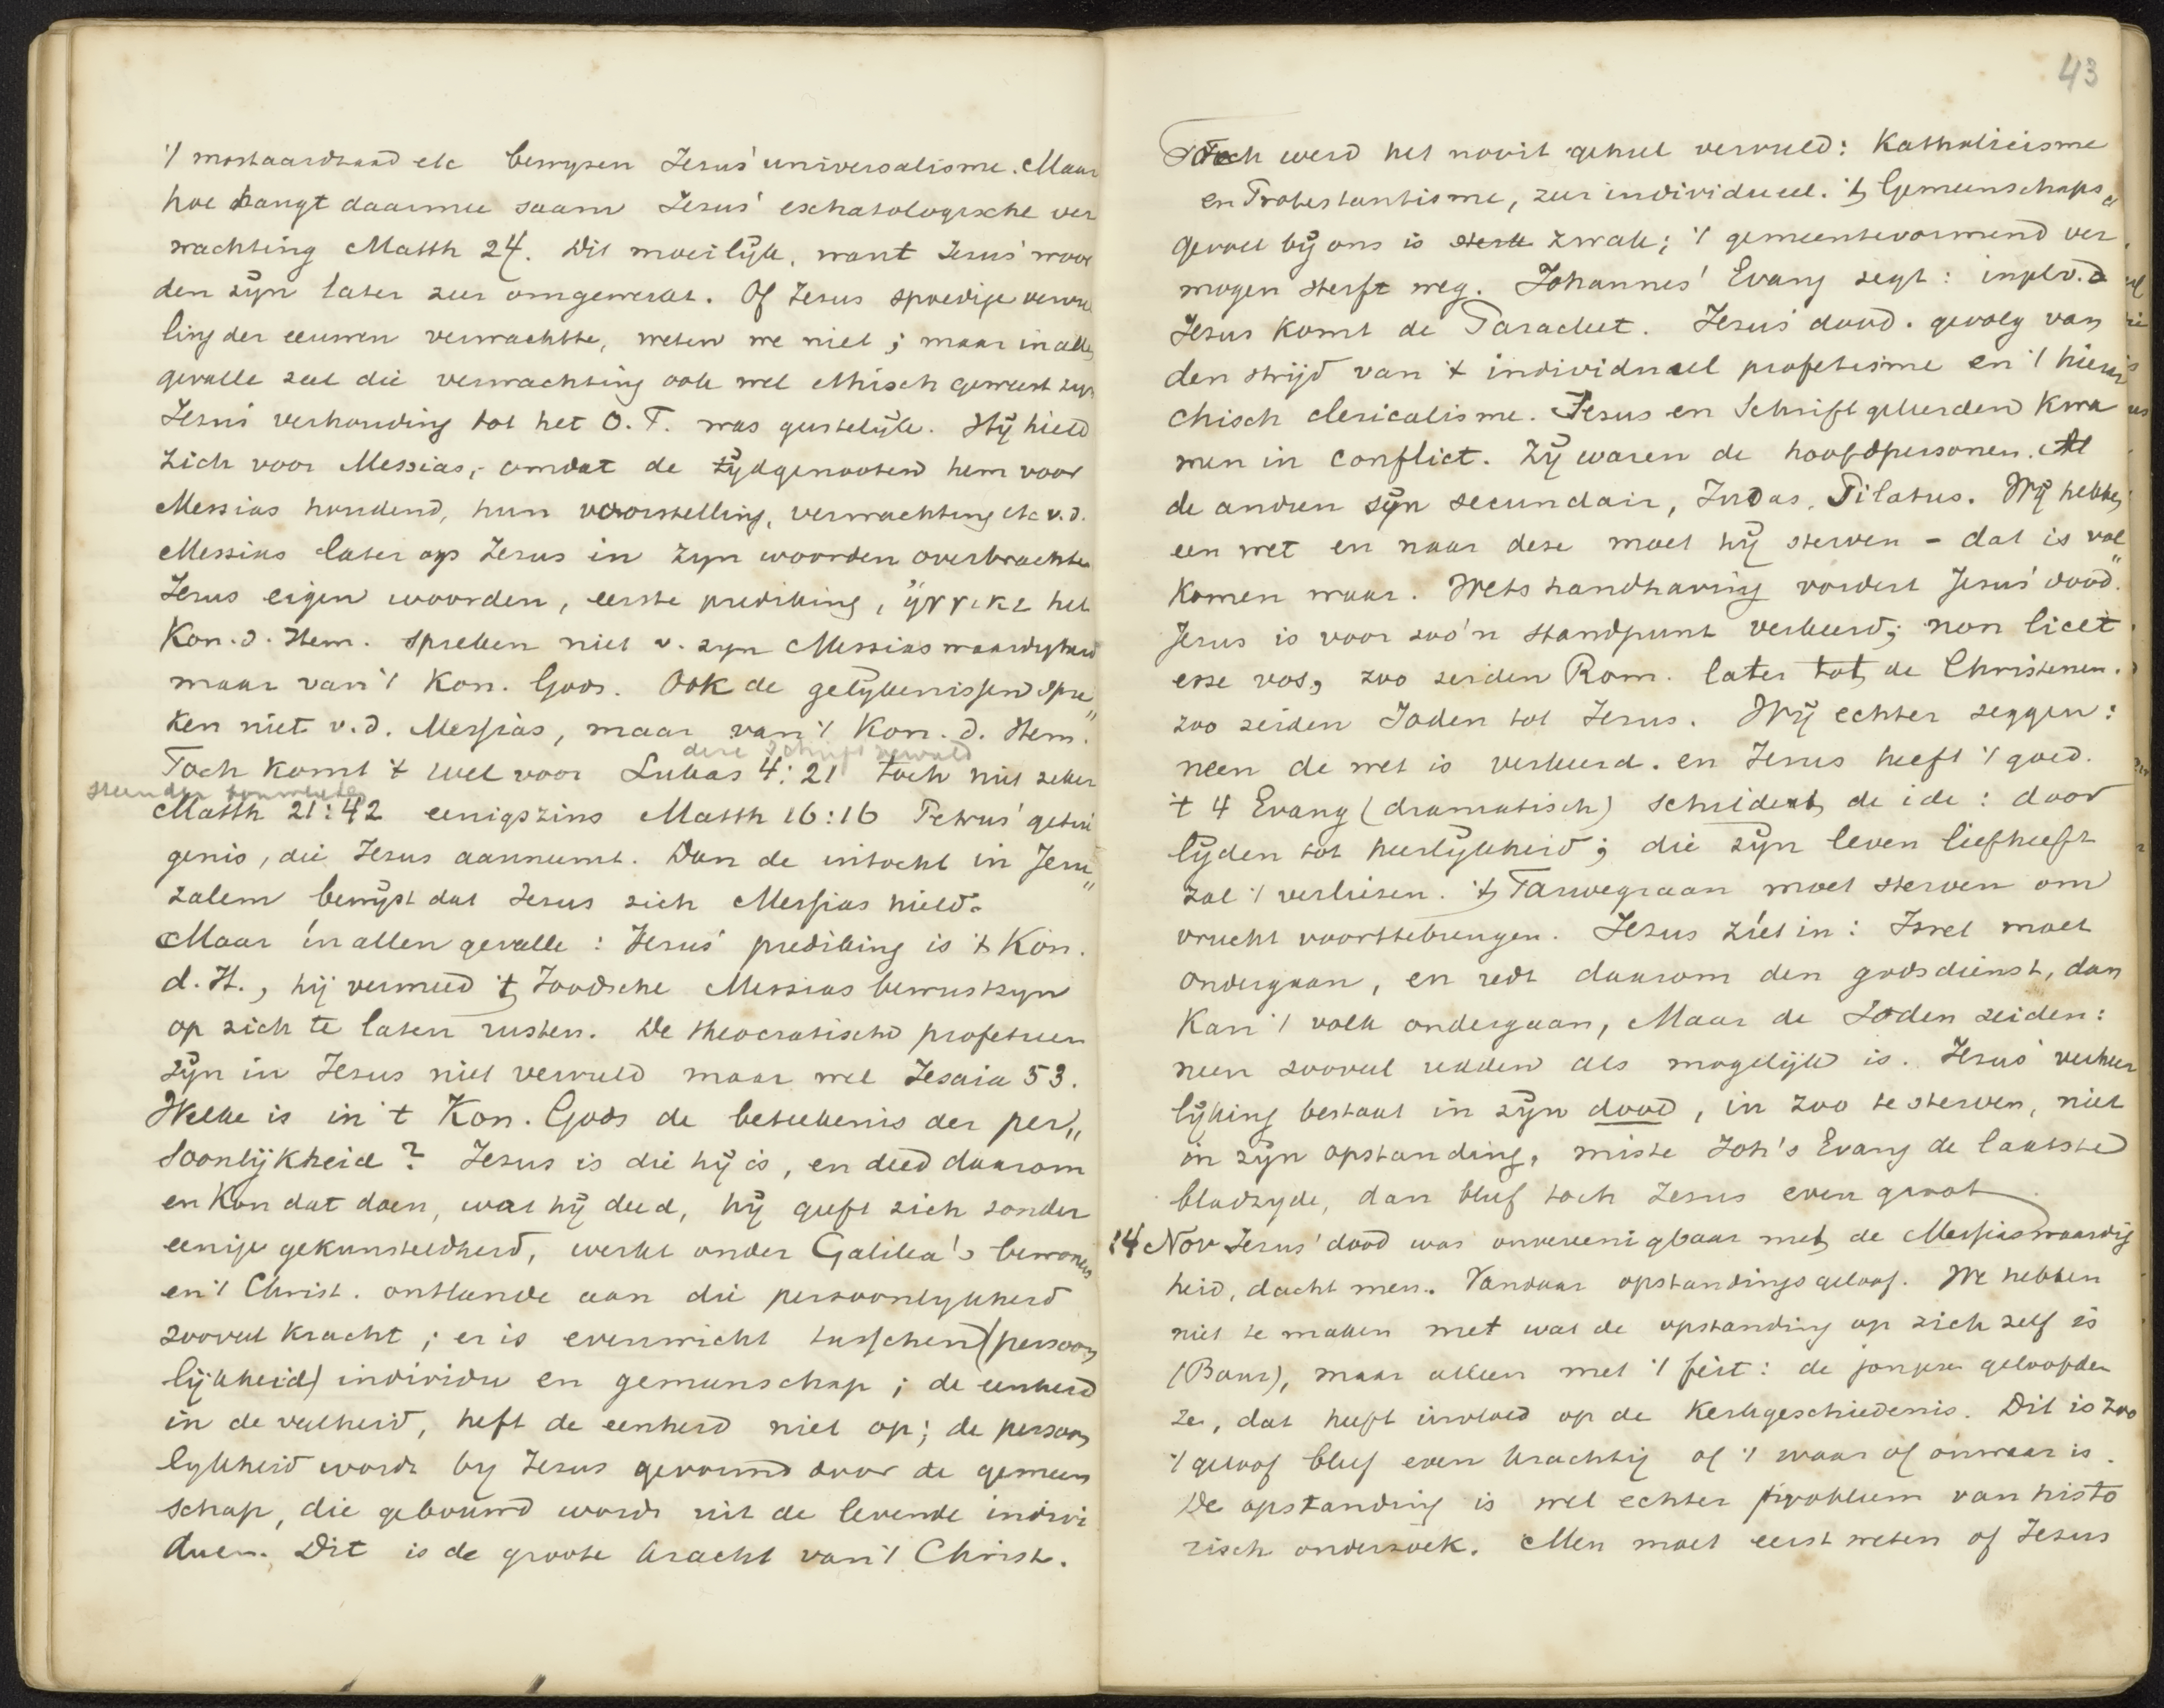 't mostaardzaad etc bewyzen Jezus' universalisme. Maar
hoe hangt daarmee saam Jezus' eschatologische ver
wachting Matth 24. Dit moeilijk, want Jezus' woor
den zijn later zeer omgewerkt. Of Jezus spoedige verwu
ling der eeuwen verwachtte, weten we niet; maar in alle
gevalle zal die verwachting ook wel ethisch geweest zijn
Jezus' verhouding tot het O.T. was geestelijk. Hij hield
zich voor Messias, omdat de tijdgenooten hem voor
Messias houdend, hun voorstelling, verwachting etc v.d.
Messias later op Jezus in zyn woorden overbrachten
Jezus eigen woorden, eerste prediking, ἤγγικε het
Kon. d. Hem. spreken niet v. zyn Messiaswaardigheid
maar van 't Kon. Gods. Ook de gelykenissen spre„
ken niet v.d. Messias, maar van 't Kon. d. Hem.
deze schrift vervuld
Toch komt 't wel voor Lukas 4:21 toch niet zeker
steen der bouwlieden
Matth 21:42 eenigszins Matth 16:16 Petrus' getui
genis, die Jezus aanneemt. Dan de intocht in Jeru„
zalem bewijst dat Jezus zich Messias hield.
Maar in allen gevalle: Jezus' prediking is 't Kon.
d. H., hij vermeed 't Joodsche Messiasbewustzyn
op zich te laten rusten. De theocratische profetieen
zijn in Jezus niet vervuld maar wel Jesaia 53.
Welke is in 't Kon. Gods de beteekenis der per„
soonlijkheid? Jezus is die hij is, en deed daarom
en kon dat doen, wat hij deed, hij geeft zich zonder
eenige gekunsteldheid, werkt onder Galilea's bewoners
en 't Christ. ontleende aan die persoonlykheid
zooveel kracht; er is evenwicht tusschen (persoon
lijkheid) individu en gemeenschap; de eenheid
in de veelheid, heft de eenheid niet op; de persoon
lykheid wordt by Jezus gevormd door de gemeen
schap, die gebouwd wordt uit de levende indivi
duen. Dit is de groote kracht van 't Christ.
43
Toch werd het nooit geheel vervuld: Katholicisme
en Protestantisme, zeer individueel. 't Gemeenschaps„
gevoel bij ons is sterk zwak; 't gemeentevormend ver
mogen sterft weg. Johannes' Evang zegt: in pl. v. d
Jezus komt de Paracleet. Jezus' dood. gevolg van
den strijd van 't individueel profetisme en 't hierar
chisch clericalisme. Jezus en Schriftgeleerden kwa
men in conflict. Zij waren de hoofdpersonen. Al
de andren zijn secundair, Judas, Pilatus. Wij hebben
een wet en naar deze moet hij sterven - dat is vol„
komen waar. Wetshandhaving vordert Jezus' dood.
Jezus is voor zoo'n standpunt verkeerd; non licet
esse vos, zoo zeiden Rom. later tot de Christenen.
zoo zeiden Joden tot Jezus. Wij echter zeggen:
neen de wet is verkeerd. en Jezus heeft 't goed.
't 4 Evang (dramatisch) schildert de ide: door
lijden tot heerlijkheid; die zijn leven liefheeft
zal 't verliezen. 't Tarwegraan moet sterven om
vrucht voorttebrengen. Jezus ziet in: Isrel moet
ondergaan, en redt daarom den godsdienst, dan
kan 't volk ondergaan, Maar de Joden zeiden:
neen zooveel redden als mogelijk is. Jezus' verheer
lijking bestaat in zijn dood, in zoo te sterven, niet
in zijn opstanding, miste Joh's Evang de laatste
bladzyde, dan bleef toch Jezus even groot.
14 Nov Jezus' dood was onvereenigbaar met de Messiaswaardig
heid, dacht men. Vandaar opstandingsgeloof. We hebben
niet te maken met wat de opstanding op zich zelf is
(Baur), maar alleen met 't feit: de jongeren geloofden
ze, dat heeft invloed op de kerkgeschiedenis. Dit is zoo
't geloof bleef even krachtig of 't waar of onwaar is.
De opstanding is wel echter probleem van histo
risch onderzoek. Men moet eerst weten of Jezus